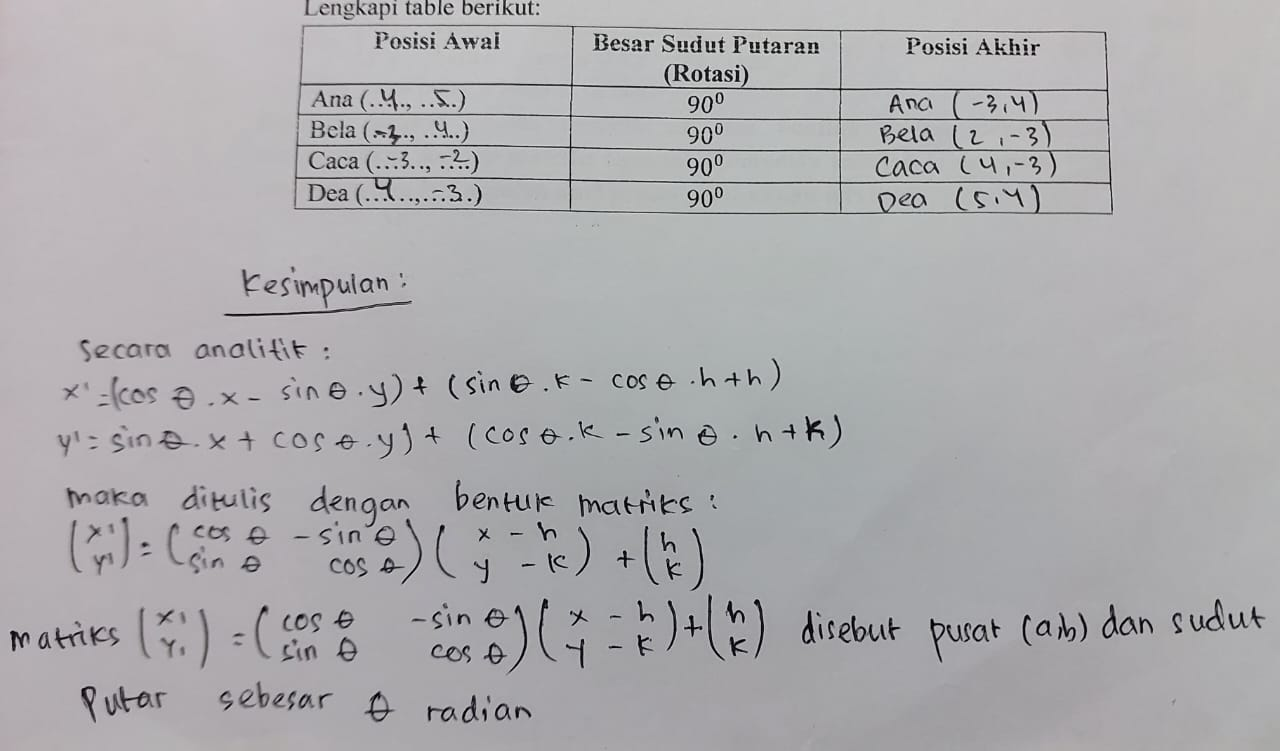 Lengkapi table berikut:
Posisi Awal | Besar Sudut Putaran (Rotasi) | Posisi Akhir
Ana (..4.., ..5..) | 90⁰ | Ana (-3,4)
Bela (.., ..4..) | 90⁰ | Bela (2,-3)
Caca (..-3.., ..-2..) | 90⁰ | Caca (4,-3)
Dea (..4..,..-3..) | 90⁰ | Dea (5,4)
Kesimpulan :
Secara analitik :
x' = (cos θ . x - sin θ . y) + (sin θ . k - cos θ . h + h)
y' = sin θ . x + cos θ . y) + (cos θ . k - sin θ . h + k)
maka ditulis dengan bentuk matriks :
(x' y') = (cos θ -sin θ sin θ cos θ) (x - h y - k) + (h k)
matriks (x' y') = (cos θ -sin θ sin θ cos θ) (x - h y - k) + (h k) disebut pusat (a,b) dan sudut
Putar sebesar θ radian